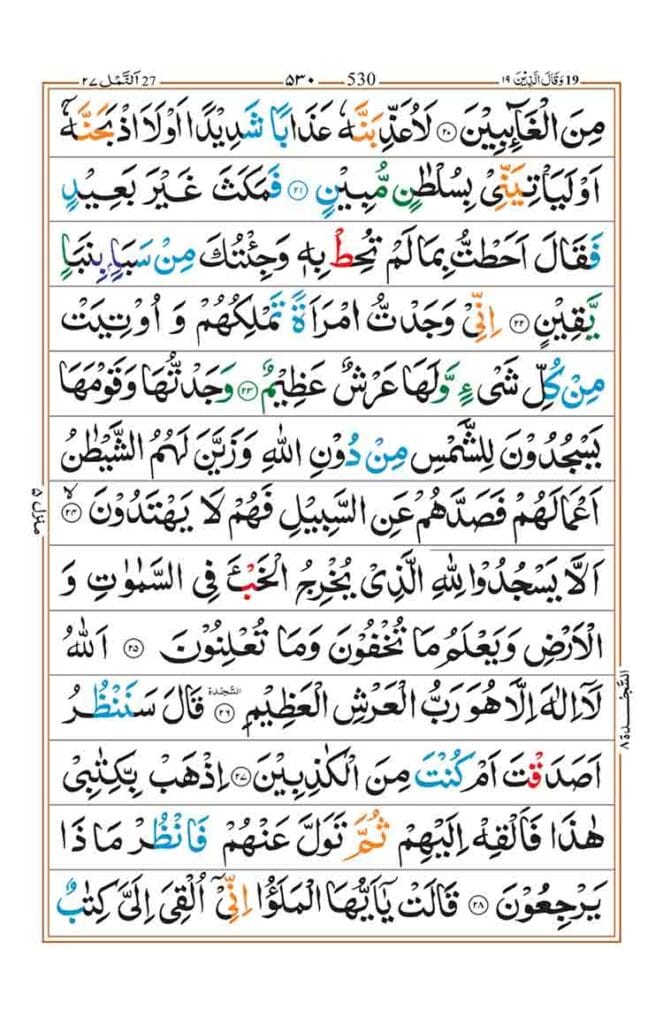 19 وَقَالَ الَّذِيْنَ ١٩
530 ٥٣٠
27 اَلنَّمْل ٢٧
مِنَ الْغَآئِبِيْنَ ﴿۲۰﴾ لَاُعَذِّبَنَّهٗ عَذَابًا شَدِيْدًا اَوْ لَاۡاذْبَحَنَّهٗۤ
اَوْ لَيَاْتِيَنِّىْ بِسُلْطٰنٍ مُّبِيْنٍ ﴿۲۱﴾ فَمَكَثَ غَيْرَ بَعِيْدٍ
فَقَالَ اَحَطْتُّ بِمَا لَمْ تُحِطْ بِهٖ وَجِئْتُكَ مِنْ سَبَاٍۢ بِنَبَاٍ
يَّقِيْنٍ ﴿۲۲﴾ اِنِّىْ وَجَدْتُّ امْرَاَةً تَمْلِكُهُمْ وَ اُوْتِيَتْ
مِنْ كُلِّ شَىْءٍ وَّلَهَا عَرْشٌ عَظِيْمٌ ﴿۲۳﴾ وَجَدْتُّهَا وَقَوْمَهَا
يَسْجُدُوْنَ لِلشَّمْسِ مِنْ دُوْنِ اللّٰهِ وَزَيَّنَ لَهُمُ الشَّيْطٰنُ
اَعْمَالَهُمْ فَصَدَّهُمْ عَنِ السَّبِيْلِ فَهُمْ لَا يَهْتَدُوْنَ ۙ﴿۲۴﴾
اَلَّا يَسْجُدُوْا لِلّٰهِ الَّذِىْ يُخْرِجُ الْخَبْءَ فِى السَّمٰوٰتِ وَ
الْاَرْضِ وَيَعْلَمُ مَا تُخْفُوْنَ وَمَا تُعْلِنُوْنَ ﴿۲۵﴾ اَللّٰهُ
لَاۤ اِلٰهَ اِلَّا هُوَ رَبُّ الْعَرْشِ الْعَظِيْمِ ﴿۲۶﴾ السَّجْدَة قَالَ سَنَنْظُرُ
اَصَدَقْتَ اَمْ كُنْتَ مِنَ الْكٰذِبِيْنَ ﴿۲۷﴾ اِذْهَبْ بِّكِتٰبِىْ
هٰذَا فَاَلْقِهْ اِلَيْهِمْ ثُمَّ تَوَلَّ عَنْهُمْ فَانْظُرْ مَاذَا
يَرْجِعُوْنَ ﴿۲۸﴾ قَالَتْ يٰۤاَيُّهَا الْمَلَؤُا اِنِّىْۤ اُلْقِىَ اِلَىَّ كِتٰبٌ
منزل ٥
السَّجْدَة ٨